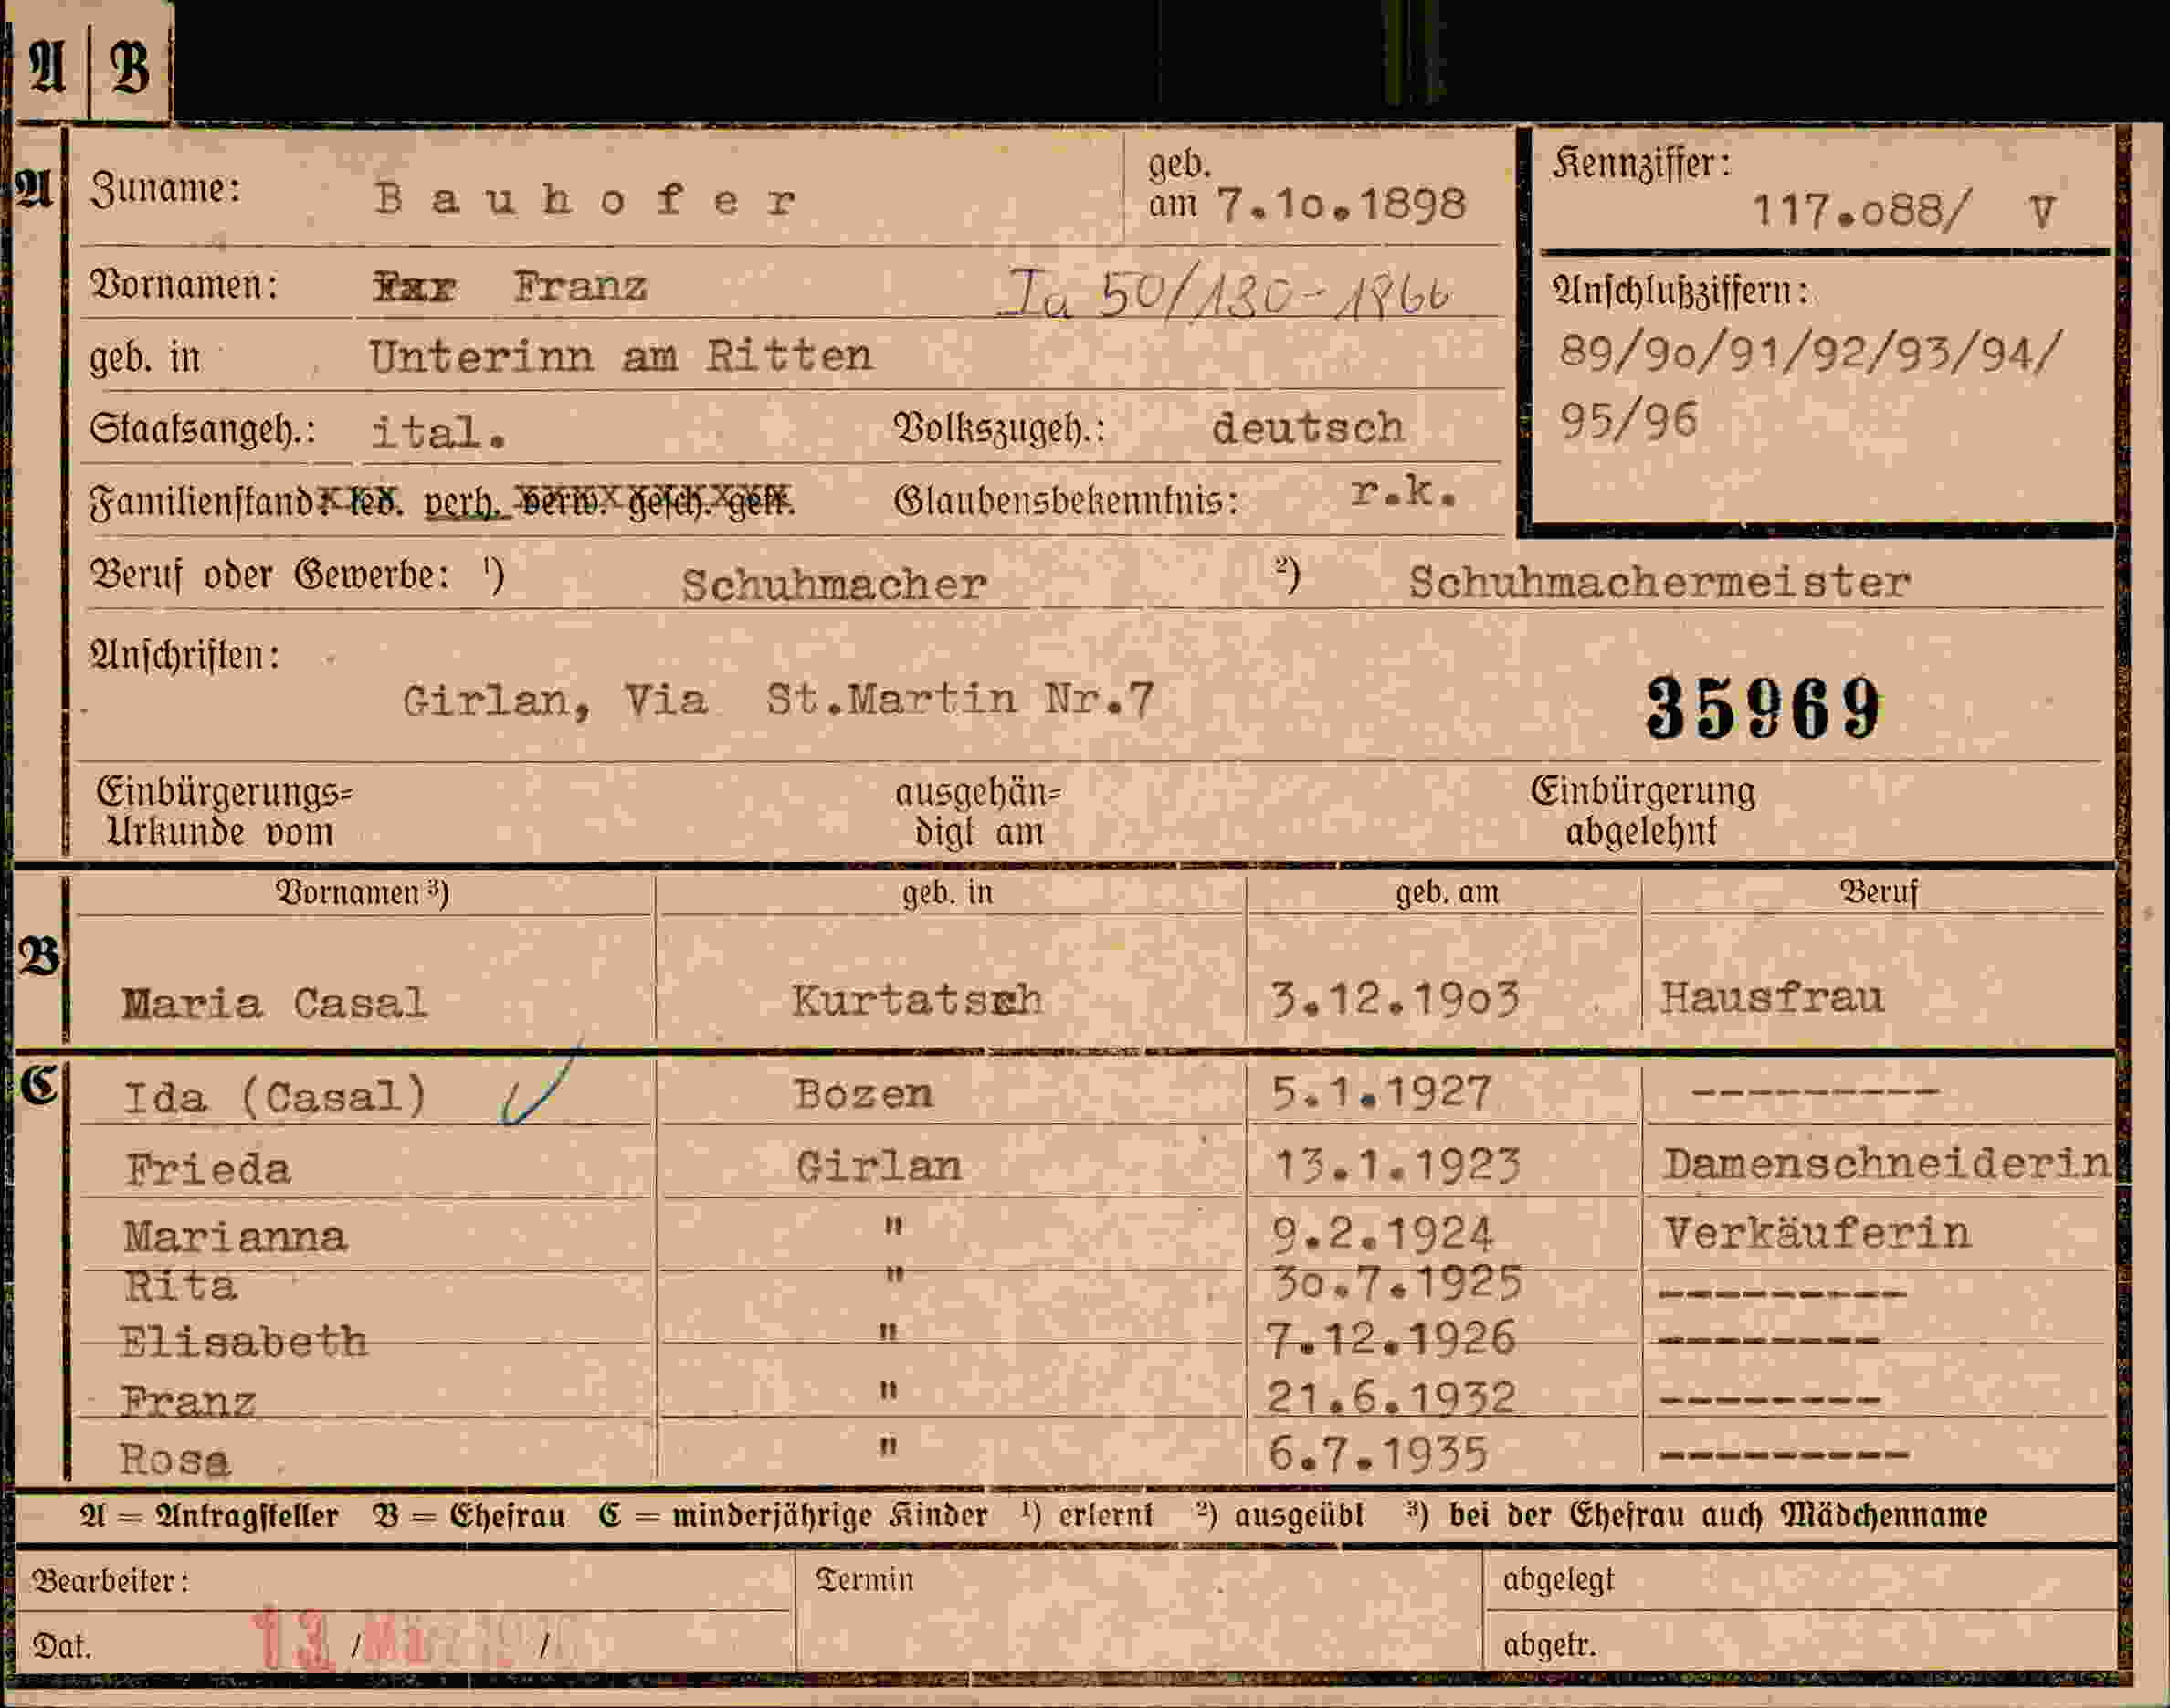 A | B
A
Zuname: Bauhofer geb. am 7.10.1898 Kennziffer: 117.088/ V
Vornamen: Franz Ia 50/130-1866 Anschlußziffern:
geb. in Unterinn am Ritten 89/90/91/92/93/94/
Staatsangeh.: ital. Volkszugeh.: deutsch 95/96
Familienstand: led. verh. verw. gesch. getr. Glaubensbekenntnis: r.k.
Beruf oder Gewerbe: 1) Schuhmacher 2) Schuhmachermeister
Anschriften:
Girlan, Via St.Martin Nr.7 35969
Einbürgerungs= ausgehän= Einbürgerung
Urkunde vom digt am abgelehnt
Vornamen 3) geb. in geb. am Beruf
B
Maria Casal Kurtatsch 3.12.1903 Hausfrau
C Ida (Casal) Bozen 5.1.1927 ---------
Frieda Girlan 13.1.1923 Damenschneiderin
Marianna " 9.2.1924 Verkäuferin
Rita " 30.7.1925 ---------
Elisabeth " 7.12.1926 --------
Franz " 21.6.1932 --------
Rosa " 6.7.1935 ---------
A = Antragsteller B = Ehefrau C = minderjährige Kinder 1) erlernt 2) ausgeübt 3) bei der Ehefrau auch Mädchenname
Bearbeiter: Termin abgelegt
Dat. 13 / / abgetr.